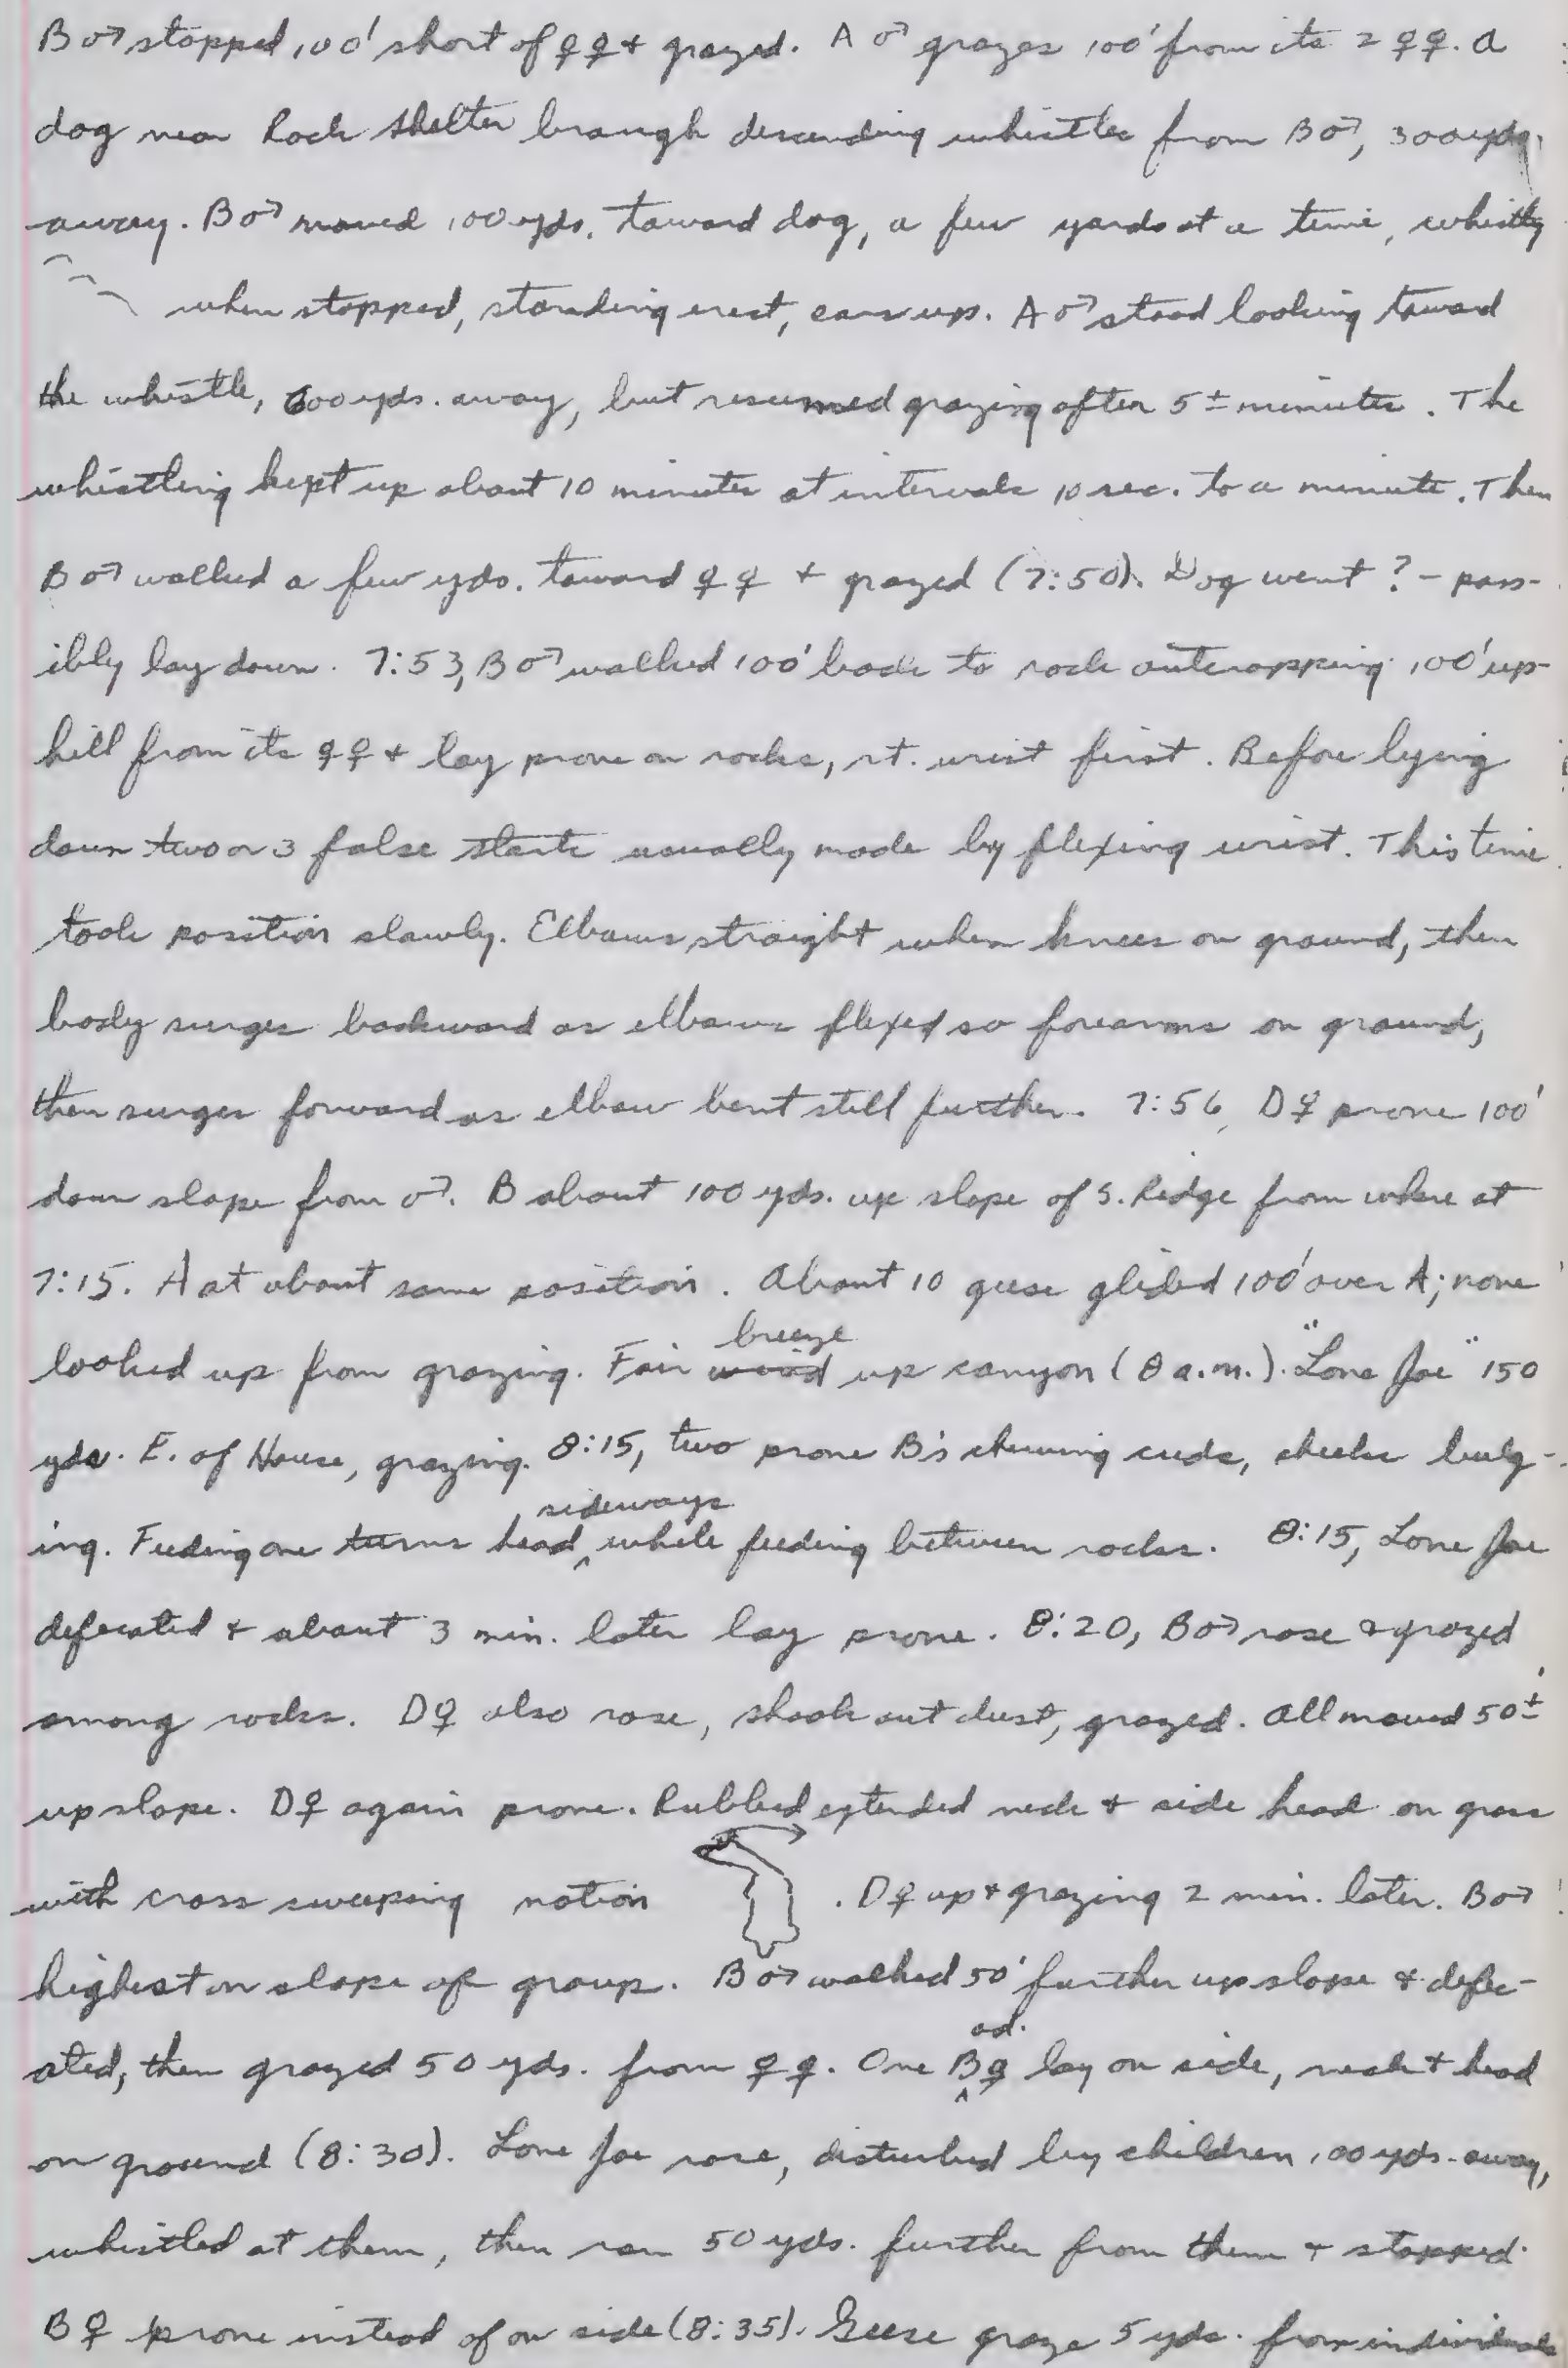 B♂ stopped 100' short of ♀♀ + grazed. A♂ grazes 100' from its 2 ♀♀. A
dog near Rock Shelter brough descending whistles from B♂, 300 yds.
away. B♂ moved 100 yds. toward dog, a few yards at a time, whistlg
when stopped, standing erect, ears up. A♂ stood looking toward
the whistle, 600 yds. away, but resumed grazing after 5± minutes. The
whistling kept up about 10 minutes at intervals 10 sec. to a minute. Then
B♂ walked a few yds. toward ♀♀ + grazed (7:50). Dog went ? - poss-
ibly lay down. 7:53, B♂ walked 100' back to rock outcropping 100' up-
hill from its ♀♀ + lay prone on rocks, rt. wrist first. Before lying
down two or 3 false starts usually made by flexing wrist. This time
took position slowly. Elbows straight when knees on ground, then
body surges backward as elbows flexed so forearms on ground,
then surges forward as elbow bent still further. 7:56, D♀ prone 100'
down slope from ♂. B about 100 yds. up slope of S. Ridge from where at
7:15. A at about same position. About 10 geese glided 100' over A; none
looked up from grazing. Fair wind breeze up canyon (8 a.m.). "Lone Joe" 150
yds. E. of House, grazing. 8:15, two prone B's chewing cuds, cheeks bulg-
ing. Feeding one turns head sideways while feeding between rocks. 8:15, Lone Joe
defecated + about 3 min. later lay prone. 8:20, B♂ rose + grazed
among rocks. D♀ also rose, shook out dust, grazed. All moved 50±'
up slope. D♀ again prone. Rubbed extended neck + side head on grass
with cross sweeping motion . D♀ up + grazing 2 min. later. B♂
highest on slope of group. B♂ walked 50' further up slope + defec-
ated, then grazed 50 yds. from ♀♀. One ad. B♀ lay on side, neck + head
on ground (8:30). Lone Joe rose, disturbed by children 100 yds. away,
whistled at them, then ran 50 yds. further from them + stopped.
B♀ prone instead of on side (8:35). Geese graze 5 yds. from individuals